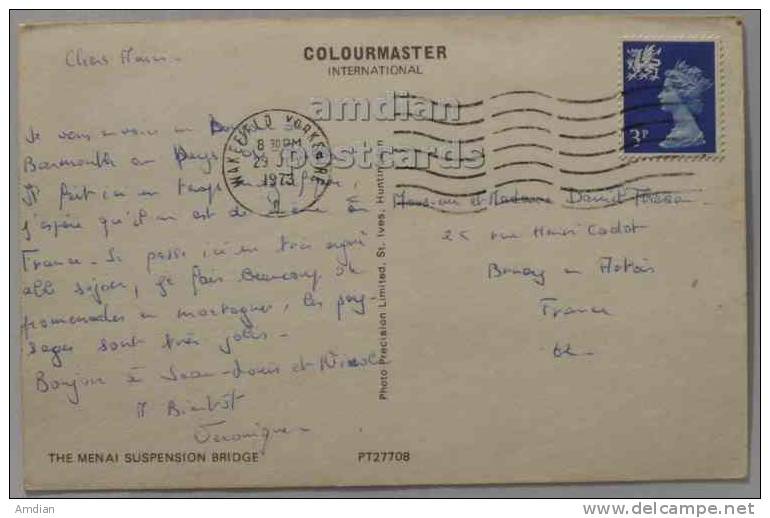 COLOURMASTER
INTERNATIONAL
amdian
postcards
3P
WAKEFIELD YORKSHIRE
8 30 PM
29
1973
Je vous envoie un
Barmouth au Pays
Il fait ici un temps
j'espère qu'il en est de même en
France. Je passe ici un très agré
able séjour, je fais beaucoup de
promenades en montagnes, les pay-
sages sont très jolis -
Bonjour à Jean-Louis et Nicole
A Bientôt
Veronique
Monsieur et Madame Daniel
25 rue Henri Cadot
Artois
France
62
Photo Precision Limited, St. Ives, Huntingdon
THE MENAI SUSPENSION BRIDGE
PT27708
Amdian
delcampe.net